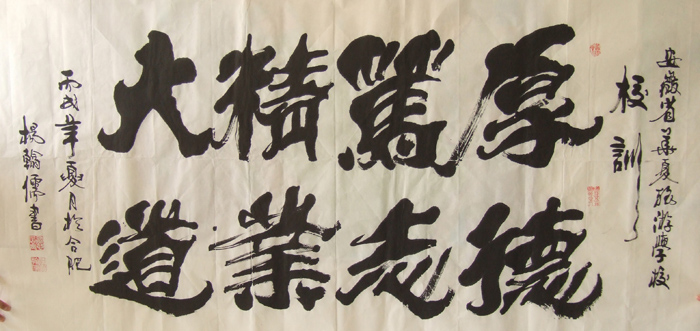 安徽省華夏旅游學校
校訓
厚德
篤志
精業
大道
丙戌年夏月於合肥
楊翰儒書